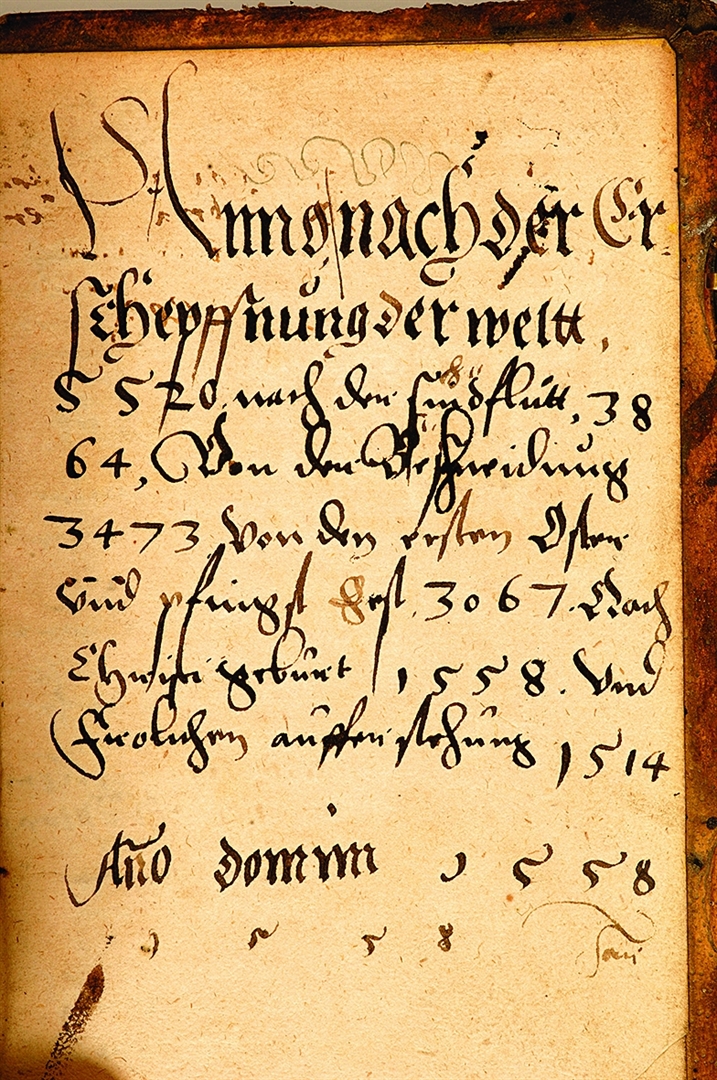 Anno nach der Er
schepffnung der weltt,
5520 nach der sündflutt, 38
64, Von der Beschneidung
3473 Von den ersten Osten
Vnd pfingst fest 3067. Nach
Christi gebürt 1558. Vnd
Frolichen aufferstehung 1514
Año domini 1558
1558